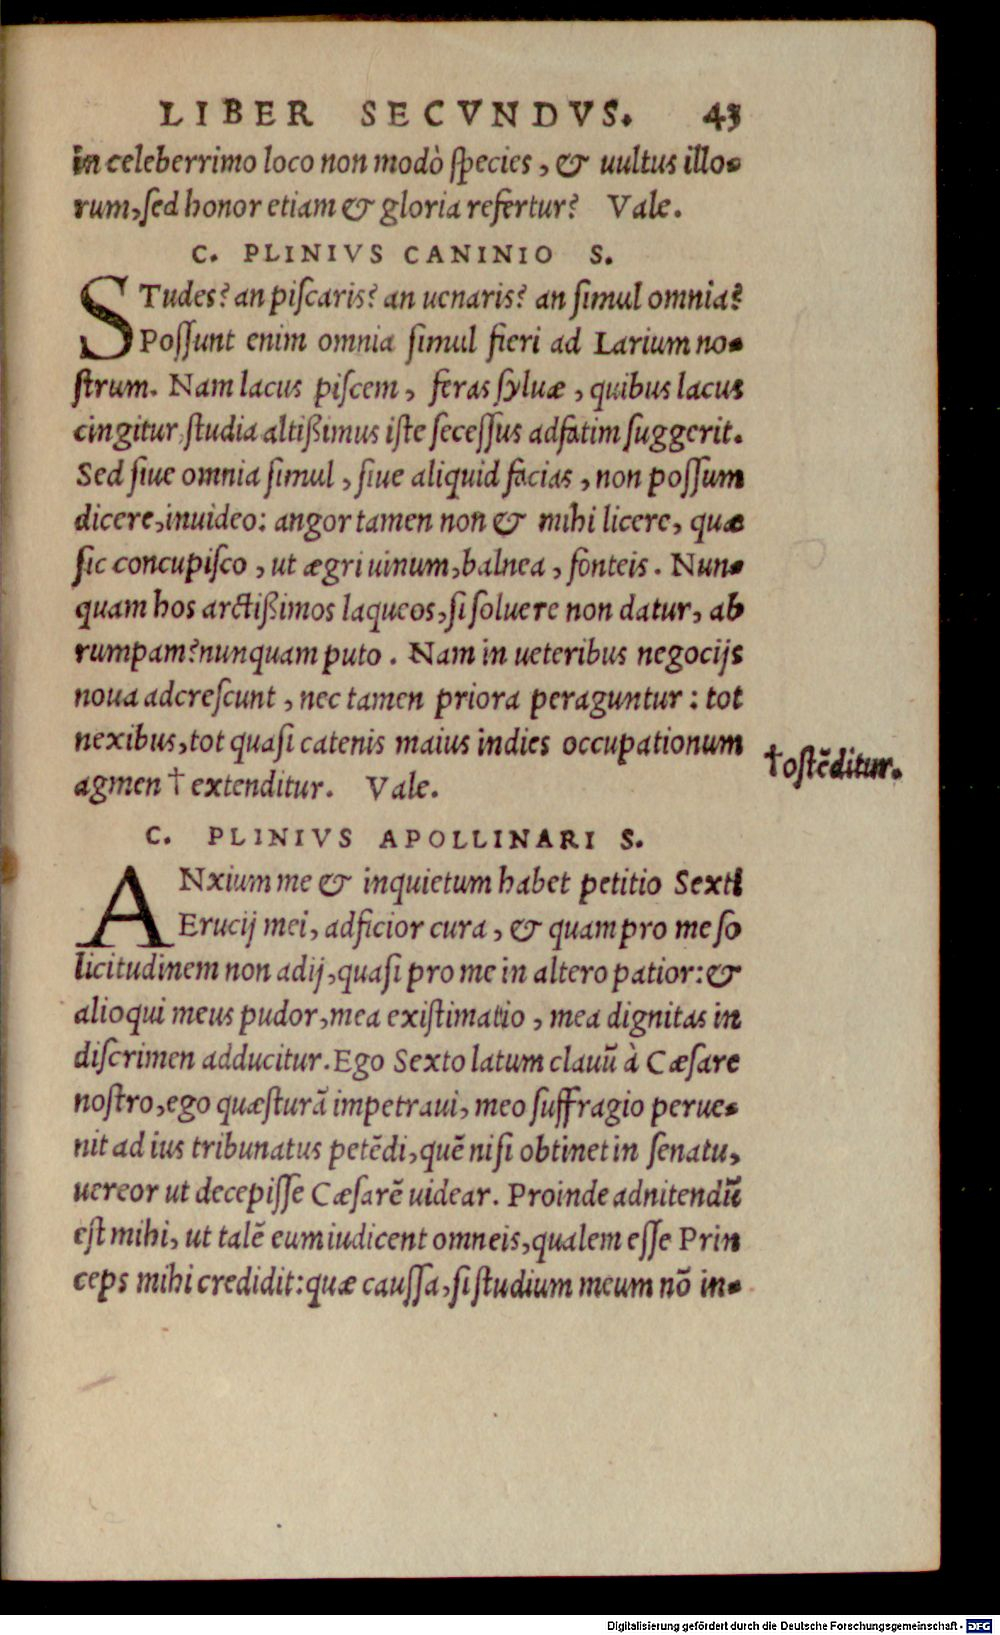 LIBER SECVNDVS. 43
in celeberrimo loco non modò species, & uultus illo-
rum, sed honor etiam & gloria refertur? Vale.
C. PLINIVS CANINIO S.
STudes? an piscaris? an uenaris? an simul omnia?
Possunt enim omnia simul fieri ad Larium no-
strum. Nam lacus piscem, feras syluæ, quibus lacus
cingitur, studia altißimus iste secessus adfatim suggerit.
Sed siue omnia simul, siue aliquid facias, non possum
dicere, inuideo: angor tamen non & mihi licere, quæ
sic concupisco, ut ægri uinum, balnea, fonteis. Nun-
quam hos arctißimos laqueos, si soluere non datur, ab
rumpam? nunquam puto. Nam in ueteribus negocijs
noua adcrescunt, nec tamen priora peraguntur: tot
nexibus, tot quasi catenis maius indies occupationum
agmen † extenditur. Vale.
†ostēditur.
C. PLINIVS APOLLINARI S.
ANxium me & inquietum habet petitio Sexti
Erucij mei, adficior cura, & quam pro me so
licitudinem non adij, quasi pro me in altero patior: &
alioqui meus pudor, mea existimatio, mea dignitas in
discrimen adducitur. Ego Sexto latum clauū à Cæsare
nostro, ego quæsturā impetraui, meo suffragio perue-
nit ad ius tribunatus petēdi, quē nisi obtinet in senatu,
uereor ut decepisse Cæsarē uidear. Proinde adnitendū
est mihi, ut talē eum iudicent omneis, qualem esse Prin
ceps mihi credidit: quæ caussa, si studium meum nō in-
Digitalisierung gefördert durch die Deutsche Forschungsgemeinschaft - DFG